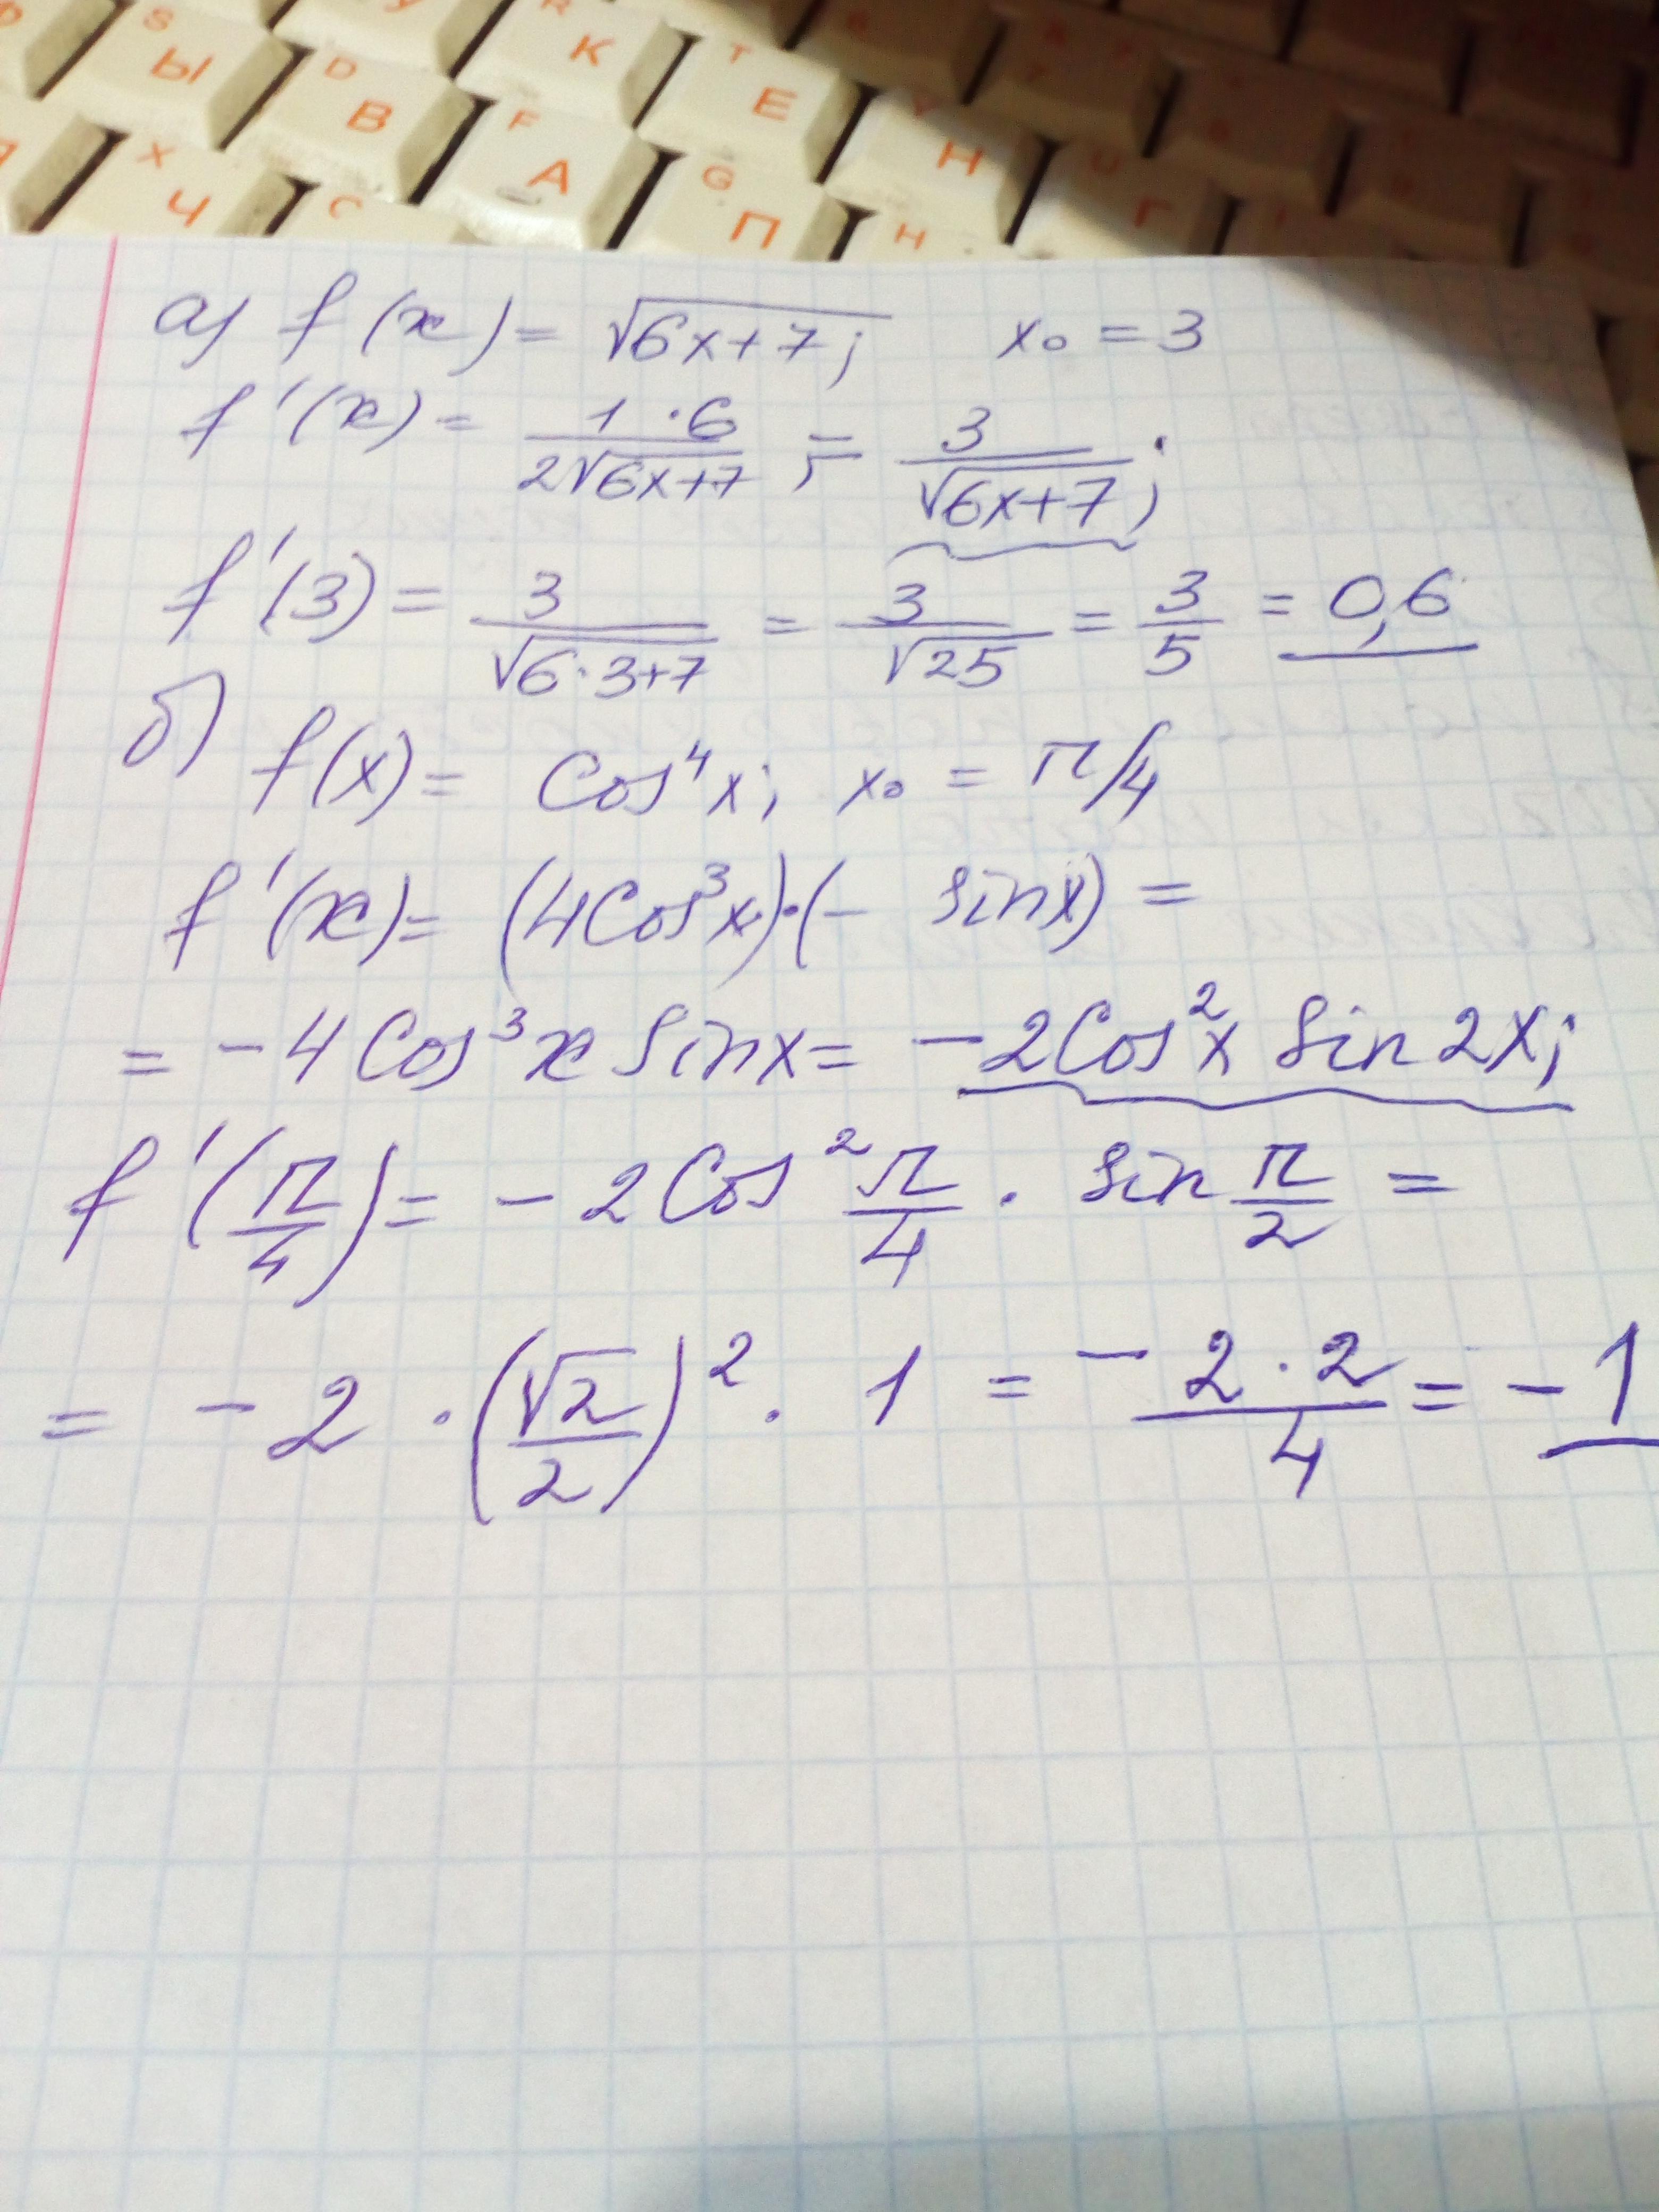 S Ы D В R К T Е
X Ч C F А G П Н H Г
а) f(x) = √(6x+7); x₀ = 3
f'(x) = (1·6)/(2√(6x+7)) ; = 3/√(6x+7);
f'(3) = 3/√(6·3+7) = 3/√25 = 3/5 = 0,6
б) f(x) = Cos⁴x; x₀ = π/4
f'(x) = (4Cos³x)·(- sinx) =
= -4Cos³x sinx = -2Cos²x sin2x;
f'(π/4) = -2Cos² π/4 · sin π/2 =
= -2 · (√2/2)² · 1 = -2·2/4 = -1